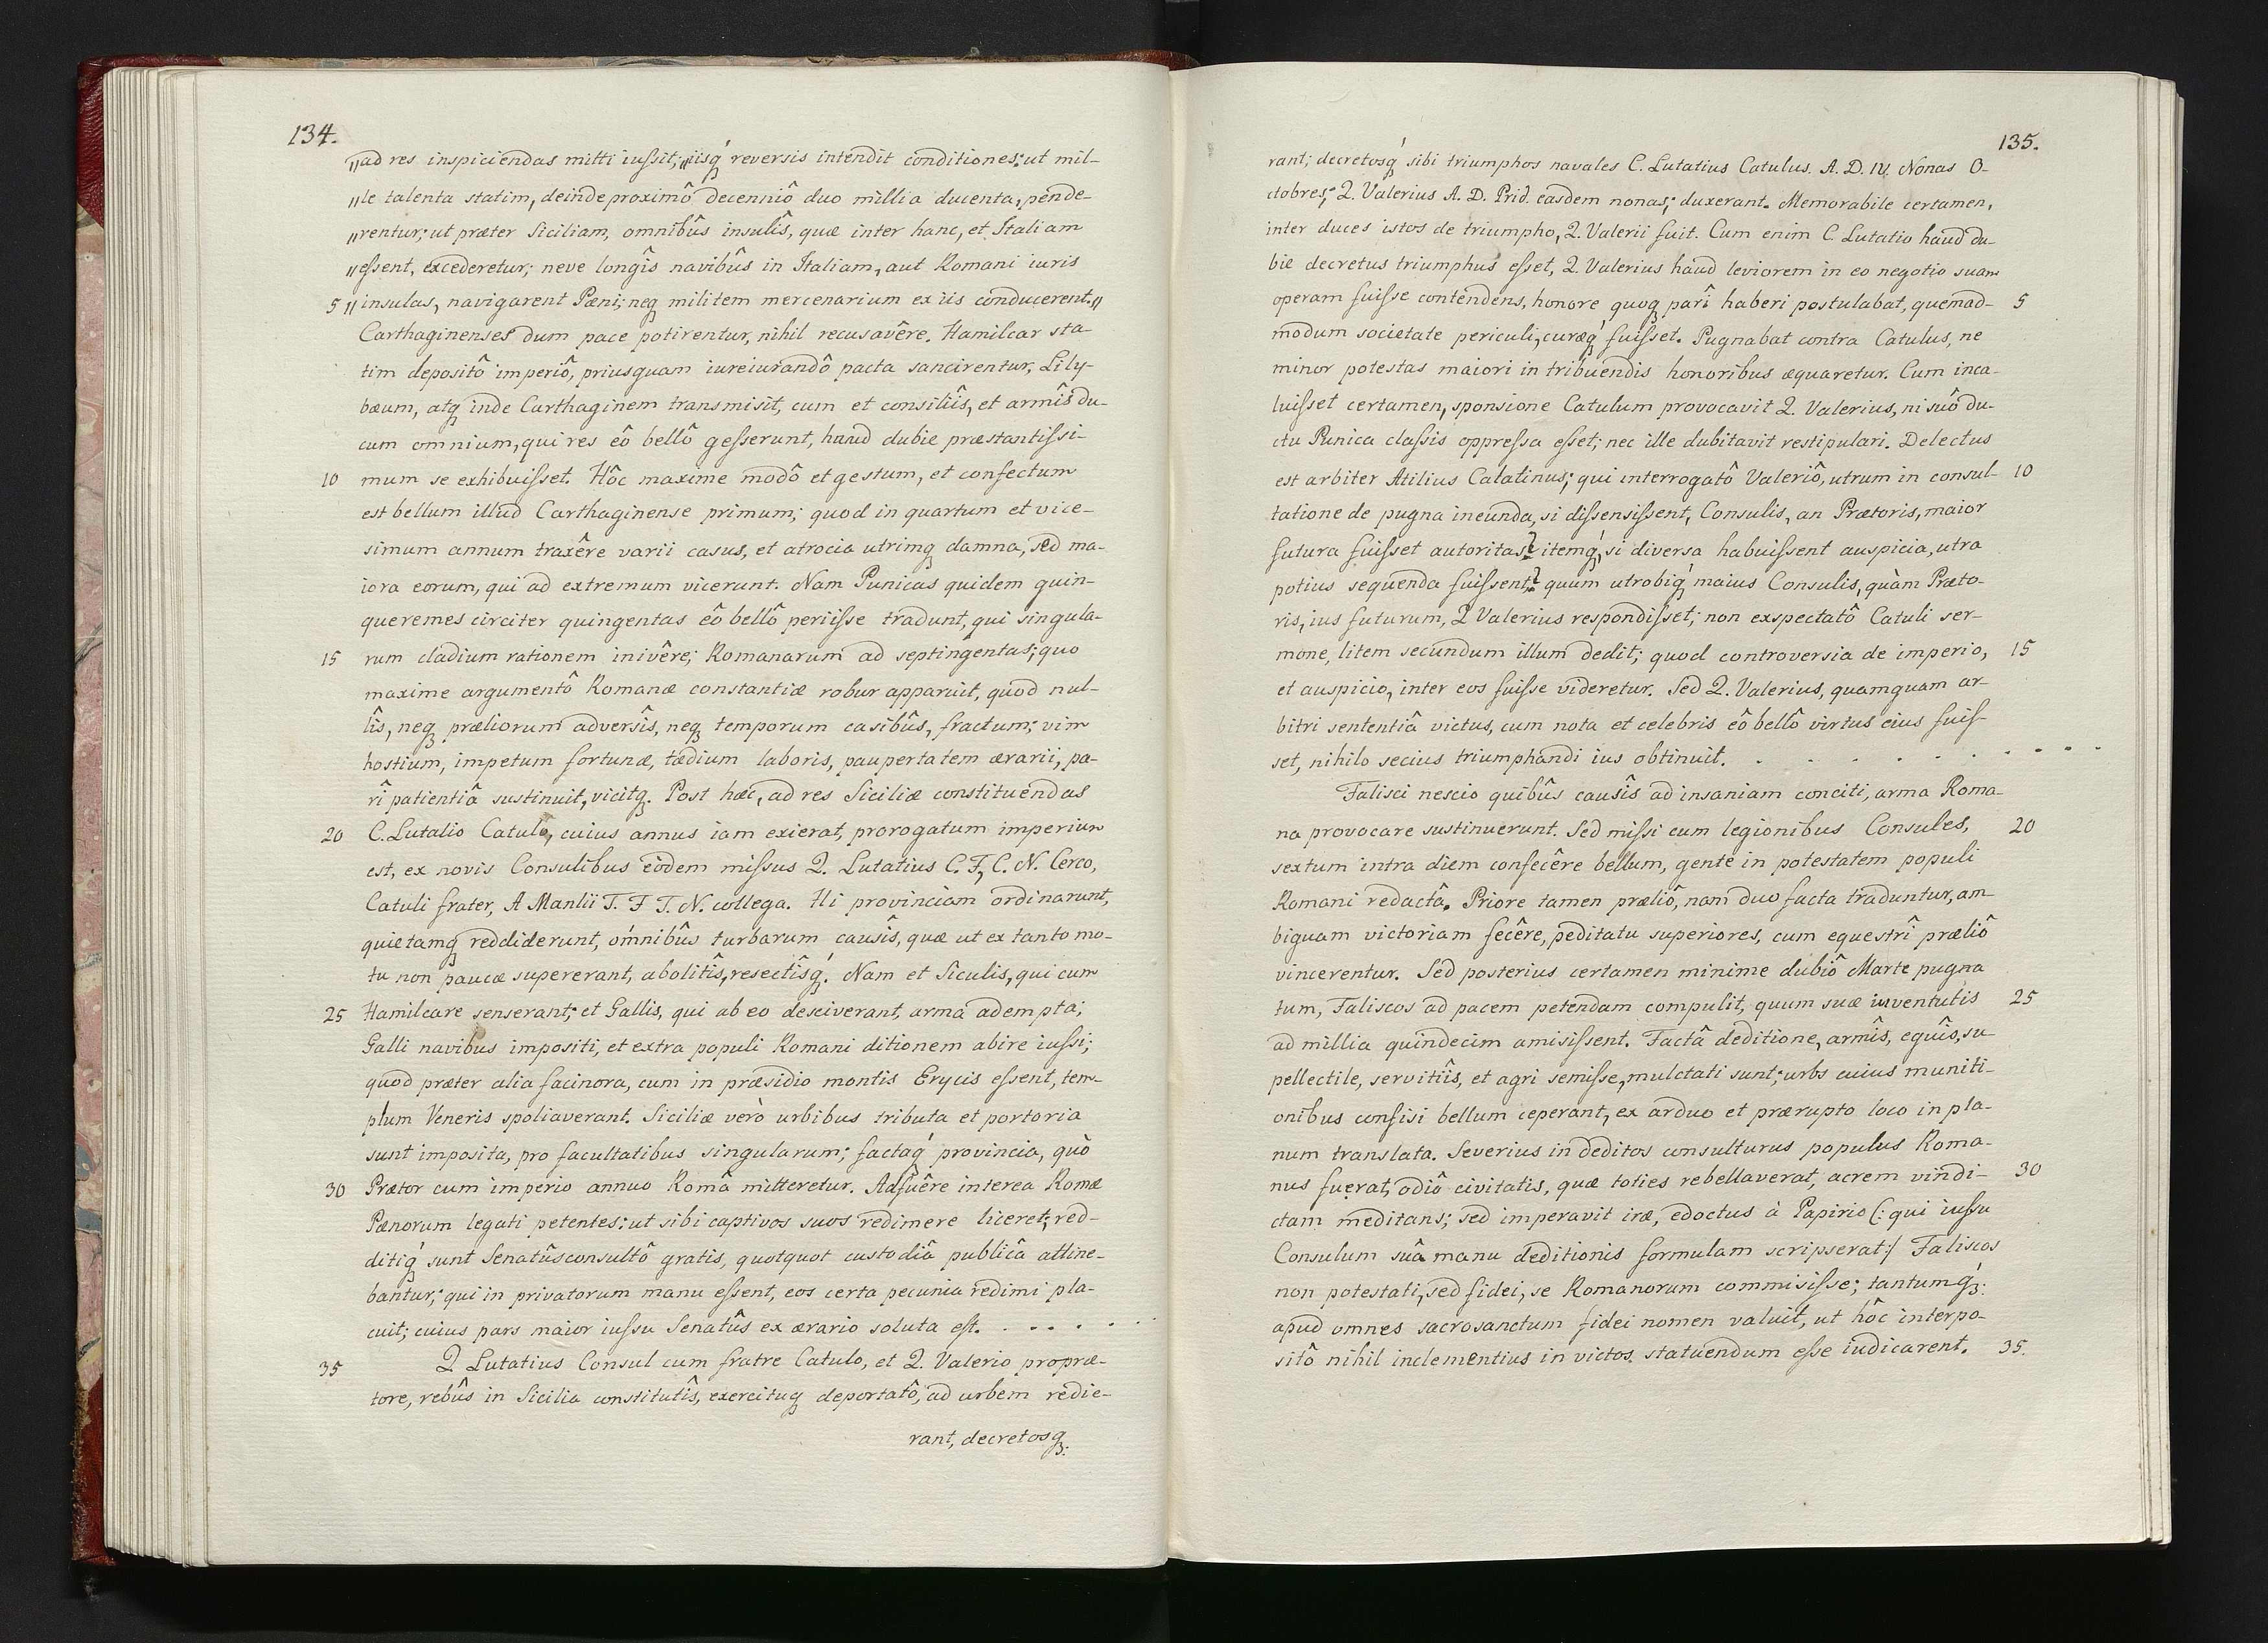 134.
„ad res inspiciendas mitti iussit; „iisq́ reversis intendit conditiones: ut mil-
„le talenta statim, deinde proximô decenniô duo millia ducenta, pende-
„rentur; ut præter Siciliam, omnibûs insulîs, quæ inter hanc, et Italiam
„essent, excederetur; neve longîs navibûs in Italiam, aut Romani iuris
5 „insulas, navigarent Pœni; neq militem mercenarium ex iis conducerent.„
Carthaginenses dum pace potirentur, nihil recusavêre. Hamilcar sta-
tim depositô imperiô, priusquam iureiurandô pacta sancirentur, Lily-
bæum, atq inde Carthaginem transmisit, cum et consiliîs, et armîs du-
cum omnium, qui res eô bellô gesserunt, haud dubie præstantissi-
10 mum se exhibuisset. Hôc maxime modô et gestum, et confectum
est bellum illud Carthaginense primum; quod in quartum et vice-
simum annum traxêre varii casus, et atrocia utrimq damna, sed ma-
iora eorum, qui ad extremum vicerunt. Nam Punicas quidem quin-
queremes circiter quingentas eô bellô periisse tradunt, qui singula-
15 rum cladium rationem inivêre; Romanarum ad septingentas; quo
maxime argumentô Romanæ constantiæ robur apparuit, quod nul-
lîs, neq præliorum adversîs, neq temporum casibûs, fractum; vim
hostium, impetum fortunæ, tædium laboris, paupertatem ærarii, pa-
rî patientiâ sustinuit, vicitq. Post hæc, ad res Siciliæ constituendas
20 C. Lutatio Catulo, cuius annus iam exierat, prorogatum imperium
est, ex novis Consulibus eôdem missus Q. Lutatius C. F, C. N. Cerco,
Catuli frater, A Manlii T. F T. N. collega. Hi provinciam ordinarunt,
quietamq reddiderunt, omnibûs turbarum causîs, quæ ut ex tanto mo-
tu non paucæ supererant, abolitîs, resectîsq́. Nam et Siculis, qui cum
25 Hamilcare senserant; et Gallis, qui ab eo desciverant, arma adempta;
Galli navibus impositi, et extra populi Romani ditionem abire iussi;
quod præter alia facinora, cum in præsidio montis Erycis essent, tem-
plum Veneris spoliaverant. Siciliæ verò urbibus tributa et portoria
sunt imposita, pro facultatibus singularum; factaq́ provincia, quò
30 Prætor cum imperio annuo Româ mitteretur. Adfuêre interea Romæ
Pænorum legati petentes: ut sibi captivos suos redimere liceret; red-
ditiq́ sunt Senatûsconsultô gratis, quotquot custodiâ publicâ attine-
bantur; qui in privatorum manu essent, eos certa pecunia redimi pla-
cuit; cuius pars maior iussu Senatûs ex ærario soluta est. . . . . . .
35 Q Lutatius Consul cum fratre Catulo, et Q. Valerio propræ-
tore, rebûs in Sicilia constitutîs, exercituq deportatô, ad urbem redie-
rant, decretosq:
135.
rant; decretosq́ sibi triumphos navales C. Lutatius Catulus. A. D. IV. Nonas O-
ctobres; Q. Valerius A. D. Prid. easdem nonas; duxerant. Memorabile certamen,
inter duces istos de triumpho, Q. Valerii fuit. Cum enim C. Lutatio haud du-
bie decretus triumphus esset, Q. Valerius haud leviorem in eo negotio suam
operam fuisse contendens, honore quoq parî haberi postulabat, quemad- 5
modum societate periculi, curæq́ fuisset. Pugnabat contra Catulus, ne
minor potestas maiori in tribuendis honoribus æquaretur. Cum inca-
luisset certamen, sponsione Catulum provocavit Q. Valerius, ni suô du-
ctu Punica classis oppressa esset; nec ille dubitavit restipulari. Delectus
est arbiter Atilius Calatinus; qui interrogatô Valeriô, utrum in consul- 10
tatione de pugna ineunda, si dissensissent, Consulis, an Prætoris, maior
futura fuisset autoritas? itemq́, si diversa habuissent auspicia, utra
potius sequenda fuissent? quum utrobiq́ maius Consulis, quàm Præto-
ris, ius futurum, Q Valerius respondisset; non exspectatô Catuli ser-
mone, litem secundum illum dedit; quod controversia de imperio, 15
et auspicio, inter eos fuisse videretur. Sed Q. Valerius, quamquam ar-
bitri sententiâ victus, cum nota et celebris eô bellô virtus eius fuis-
set, nihilo secius triumphandi ius obtinuit. . . . . . . . . .
Falisci nescio quibûs causîs ad insaniam conciti, arma Roma-
na provocare sustinuerunt. Sed missi cum legionibus Consules, 20
sextum intra diem confecêre bellum, gente in potestatem populi
Romani redactâ. Priore tamen præliô, nam duo facta traduntur, am
biguam victoriam fecêre, peditatu superiores, cum equestrî præliô
vincerentur. Sed posterius certamen minime dubiô Marte pugna
tum, Faliscos ad pacem petendam compulit, quum suæ iuventutis 25
ad millia quindecim amisissent. Factâ deditione, armîs, equîs, su
pellectile, servitiîs, et agri semisse, mulctati sunt; urbs cuius muniti-
onibus confisi bellum ceperant, ex arduo et prærupto loco in pla-
num translata. Severius in deditos consulturus populus Roma-
nus fuerat, odiô civitatis, quæ toties rebellaverat, acrem vindi- 30
ctam meditans; sed imperavit iræ, edoctus à Papirio (: qui iussu
Consulum suâ manu deditionis formulam scripserat:/ Faliscos
non potestati, sed fidei, se Romanorum commisisse; tantumq́:
apud omnes sacrosanctum fidei nomen valuit, ut hôc interpo-
sitô nihil inclementius in victos statuendum esse iudicarent. 35.